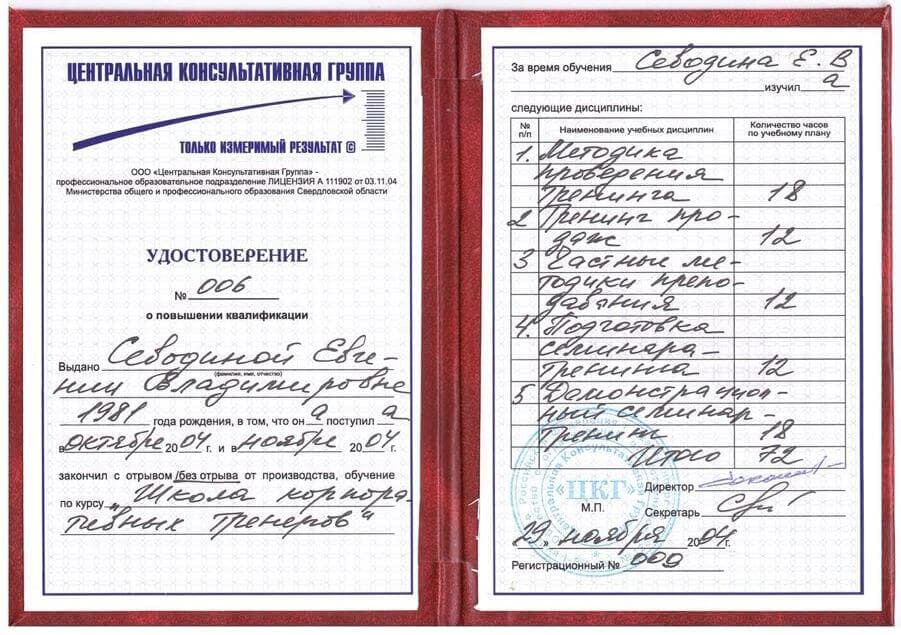 ЦЕНТРАЛЬНАЯ КОНСУЛЬТАТИВНАЯ ГРУППА
ТОЛЬКО ИЗМЕРИМЫЙ РЕЗУЛЬТАТ ©
ООО «Центральная Консультативная Группа» -
профессиональное образовательное подразделение ЛИЦЕНЗИЯ А 111902 от 03.11.04
Министерства общего и профессионального образования Свердловской области
УДОСТОВЕРЕНИЕ
№ 006
о повышении квалификации
Выдано Севодиной Евге-
(фамилия, имя, отчество)
нии Владимировне
1981 года рождения, в том, что он а поступил а
в октябре 2004 г. и в ноябре 2004 г.
закончил с отрывом /без отрыва от производства, обучение
по курсу „Школа корпора-
тивных тренеров"
За время обучения Севодина Е. В
изучил а
следующие дисциплины:
№ п/п Наименование учебных дисциплин Количество часов по учебному плану
1. Методика
проведения
тренинга 18
2 Тренинг про-
даж 12
3 Частные ме-
тодики препо-
давания 12
4. Подготовка
семинара-
тренинга 12
5 Демонстрацион-
ный семинар-
тренинг 18
Итого 72
«ЦКГ»
Директор
М.П.
Секретарь
29 ноября 2004 г.
Регистрационный № 009